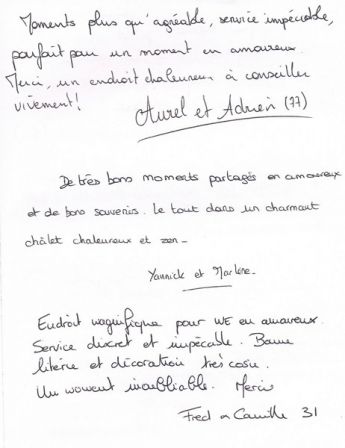 Moments plus qu'agréable, service impéccable,
parfait pour un moment en amoureux.
Merci, un endroit chaleureux à conseiller
vivement!
Aurel et Adrien (77)
De très bons moments partagés en amoureux
et de bons souvenirs. Le tout dans un charmant
châlet chaleureux et zen -
Yannick et Marlène.
Endroit magnifique pour WE en amoureux.
Service discret et impécable. Bonne
literie et décoration très cosy.
Un moment inoubliable. Merci
Fred et Camille 31